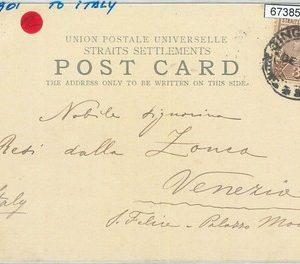 901 TO ITALY
67385
UNION POSTALE UNIVERSELLE
STRAITS SETTLEMENTS
POST CARD
THE ADDRESS ONLY TO BE WRITTEN ON THIS SIDE.
Nobile signorina
Resi dalla Zonca
Venezia
Italy
S. Felice - Palazzo